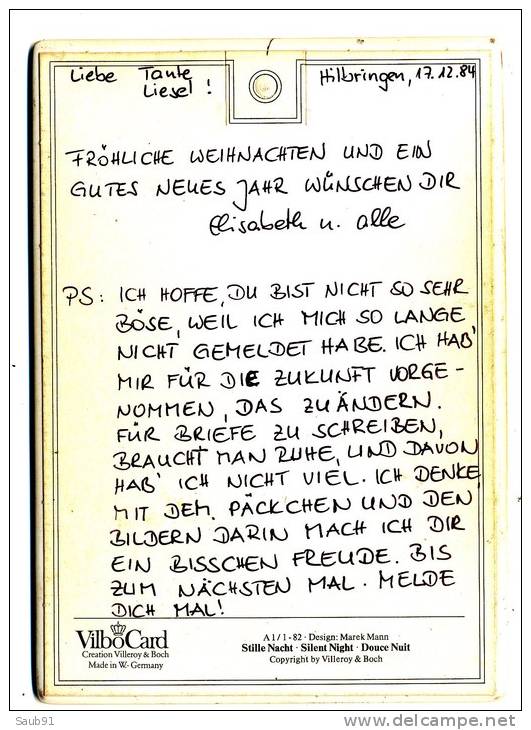 Liebe Tante Hilbringen, 17.12.84
Liesel!
FRÖHLICHE WEIHNACHTEN UND EIN
GUTES NEUES JAHR WÜNSCHEN DIR
Elisabeth u. alle
PS: ICH HOFFE, DU BIST NICHT SO SEHR
BÖSE, WEIL ICH MICH SO LANGE
NICHT GEMELDET HABE. ICH HAB'
MIR FÜR DIE ZUKUNFT VORGE-
NOMMEN, DAS ZU ÄNDERN.
FÜR BRIEFE ZU SCHREIBEN,
BRAUCHT MAN RUHE, UND DAVON
HAB' ICH NICHT VIEL. ICH DENKE,
MIT DEM PÄCKCHEN UND DEN
BILDERN DARIN MACH ICH DIR
EIN BISSCHEN FREUDE. BIS
ZUM NÄCHSTEN MAL. MELDE
DICH MAL!
VilboCard
Creation Villeroy & Boch
Made in W-Germany
A 1/1-82 · Design: Marek Mann
Stille Nacht · Silent Night · Douce Nuit
Copyright by Villeroy & Boch
Saub91